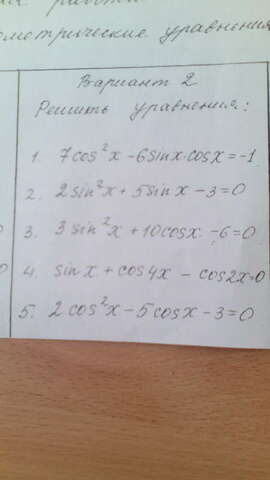 работа
метрические уравнения
Вариант 2
Решить уравнения:
1. 7cos²x - 6sinx·cosx = -1
2. 2sin²x + 5sinx - 3 = 0
3. 3sin²x + 10cosx - 6 = 0
4. sinx + cos4x - cos2x = 0
5. 2cos²x - 5cosx - 3 = 0